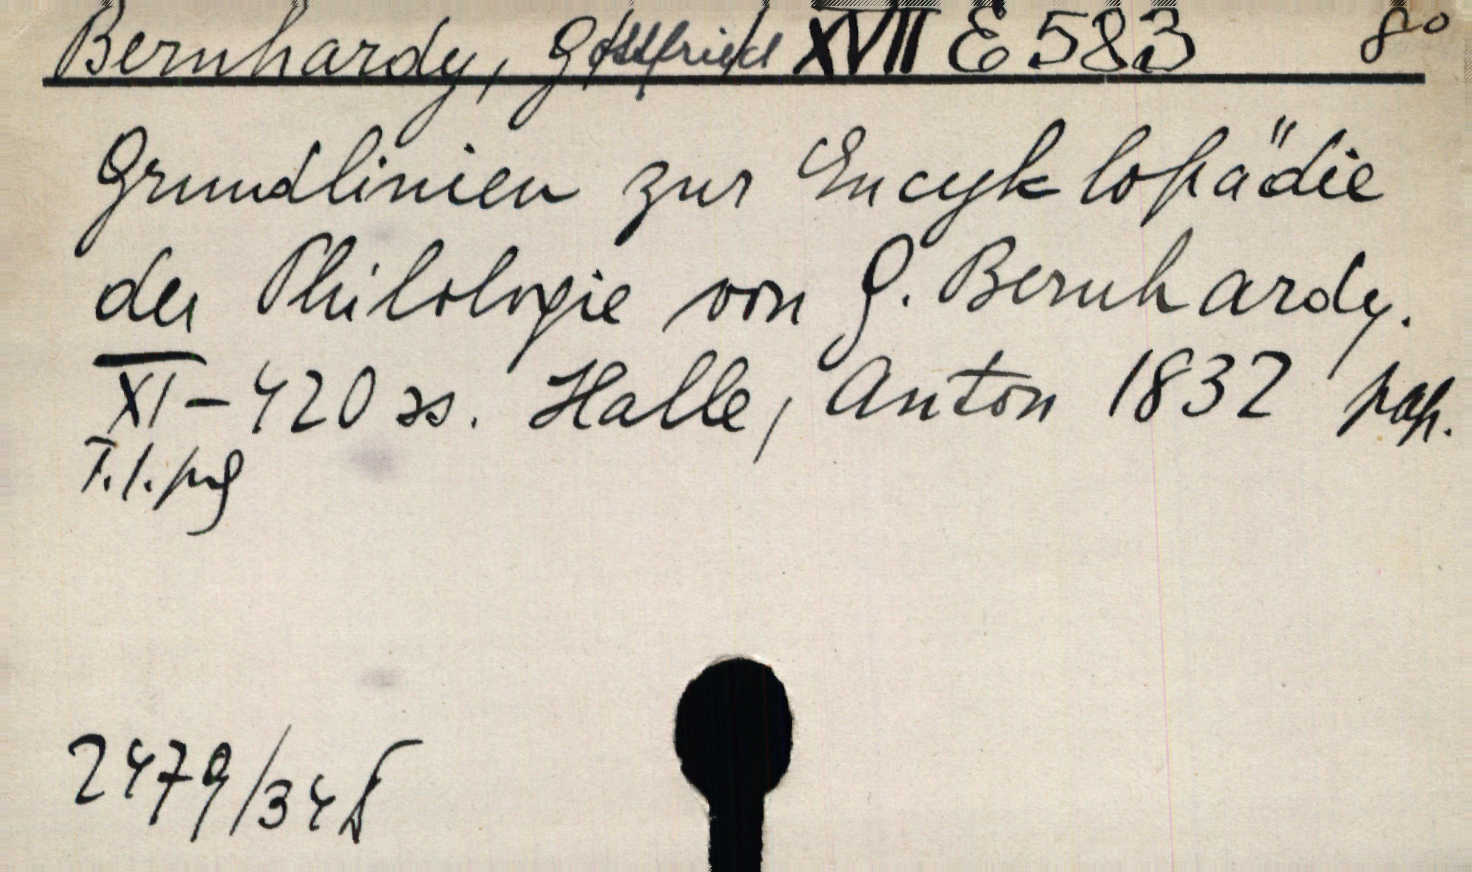 Bernhardy, Gottfried XVII E 583 8°
Grundlinien zur Encyklopädie
der Philologie von G. Bernhardy.
XI-420 ss. Halle, Anton 1832 pap.
2479/34